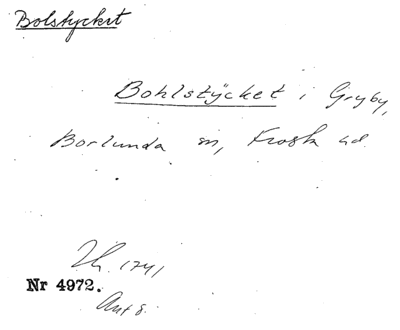 Bolstycket
Bohlstÿcket i Gryby,
Borlunda sn, Frosta hd
Jb. 1741
Nr 4972.
Ant 8.